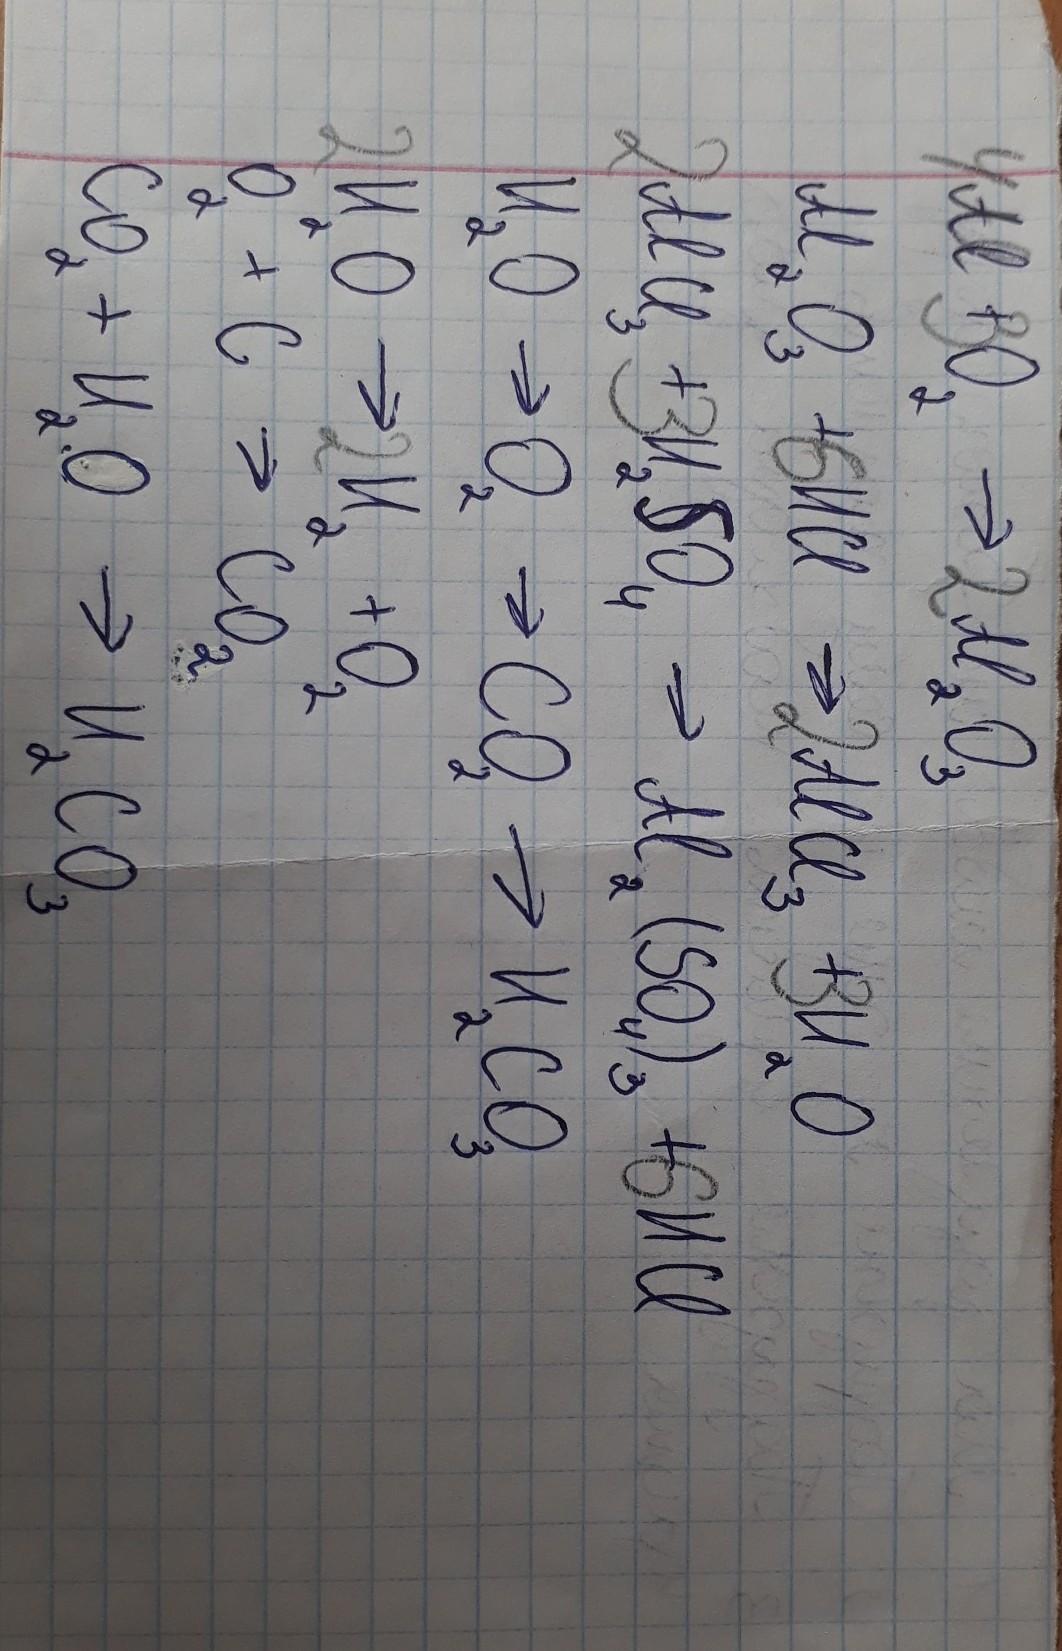 4Al + 3O₂ → 2Al₂O₃
Al₂O₃ + 6HCl → 2AlCl₃ + 3H₂O
2AlCl₃ + 3H₂SO₄ → Al₂(SO₄)₃ + 6HCl
H₂O → O₂ → CO₂ → H₂CO₃
2H₂O → 2H₂ + O₂
O₂ + C → CO₂
CO₂ + H₂O → H₂CO₃